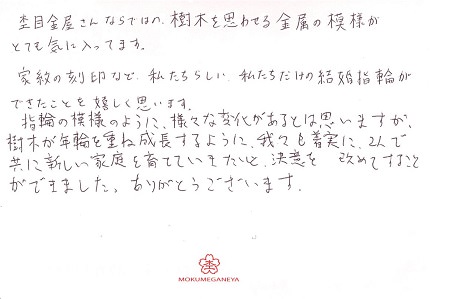 杢目金屋さんならではの、樹木を思わせる金属の模様が
とても気に入ってます。
家紋の刻印など、私たちらしい、私たちだけの結婚指輪が
できたことを嬉しく思います。
指輪の模様のように、様々な変化があるとは思いますが、
樹木が年輪を重ね成長するように、我々も着実に、2人で
共に新しい家庭を育てていきたいと、決意を 改めてすること
ができました。ありがとうございます。
MOKUMEGANEYA